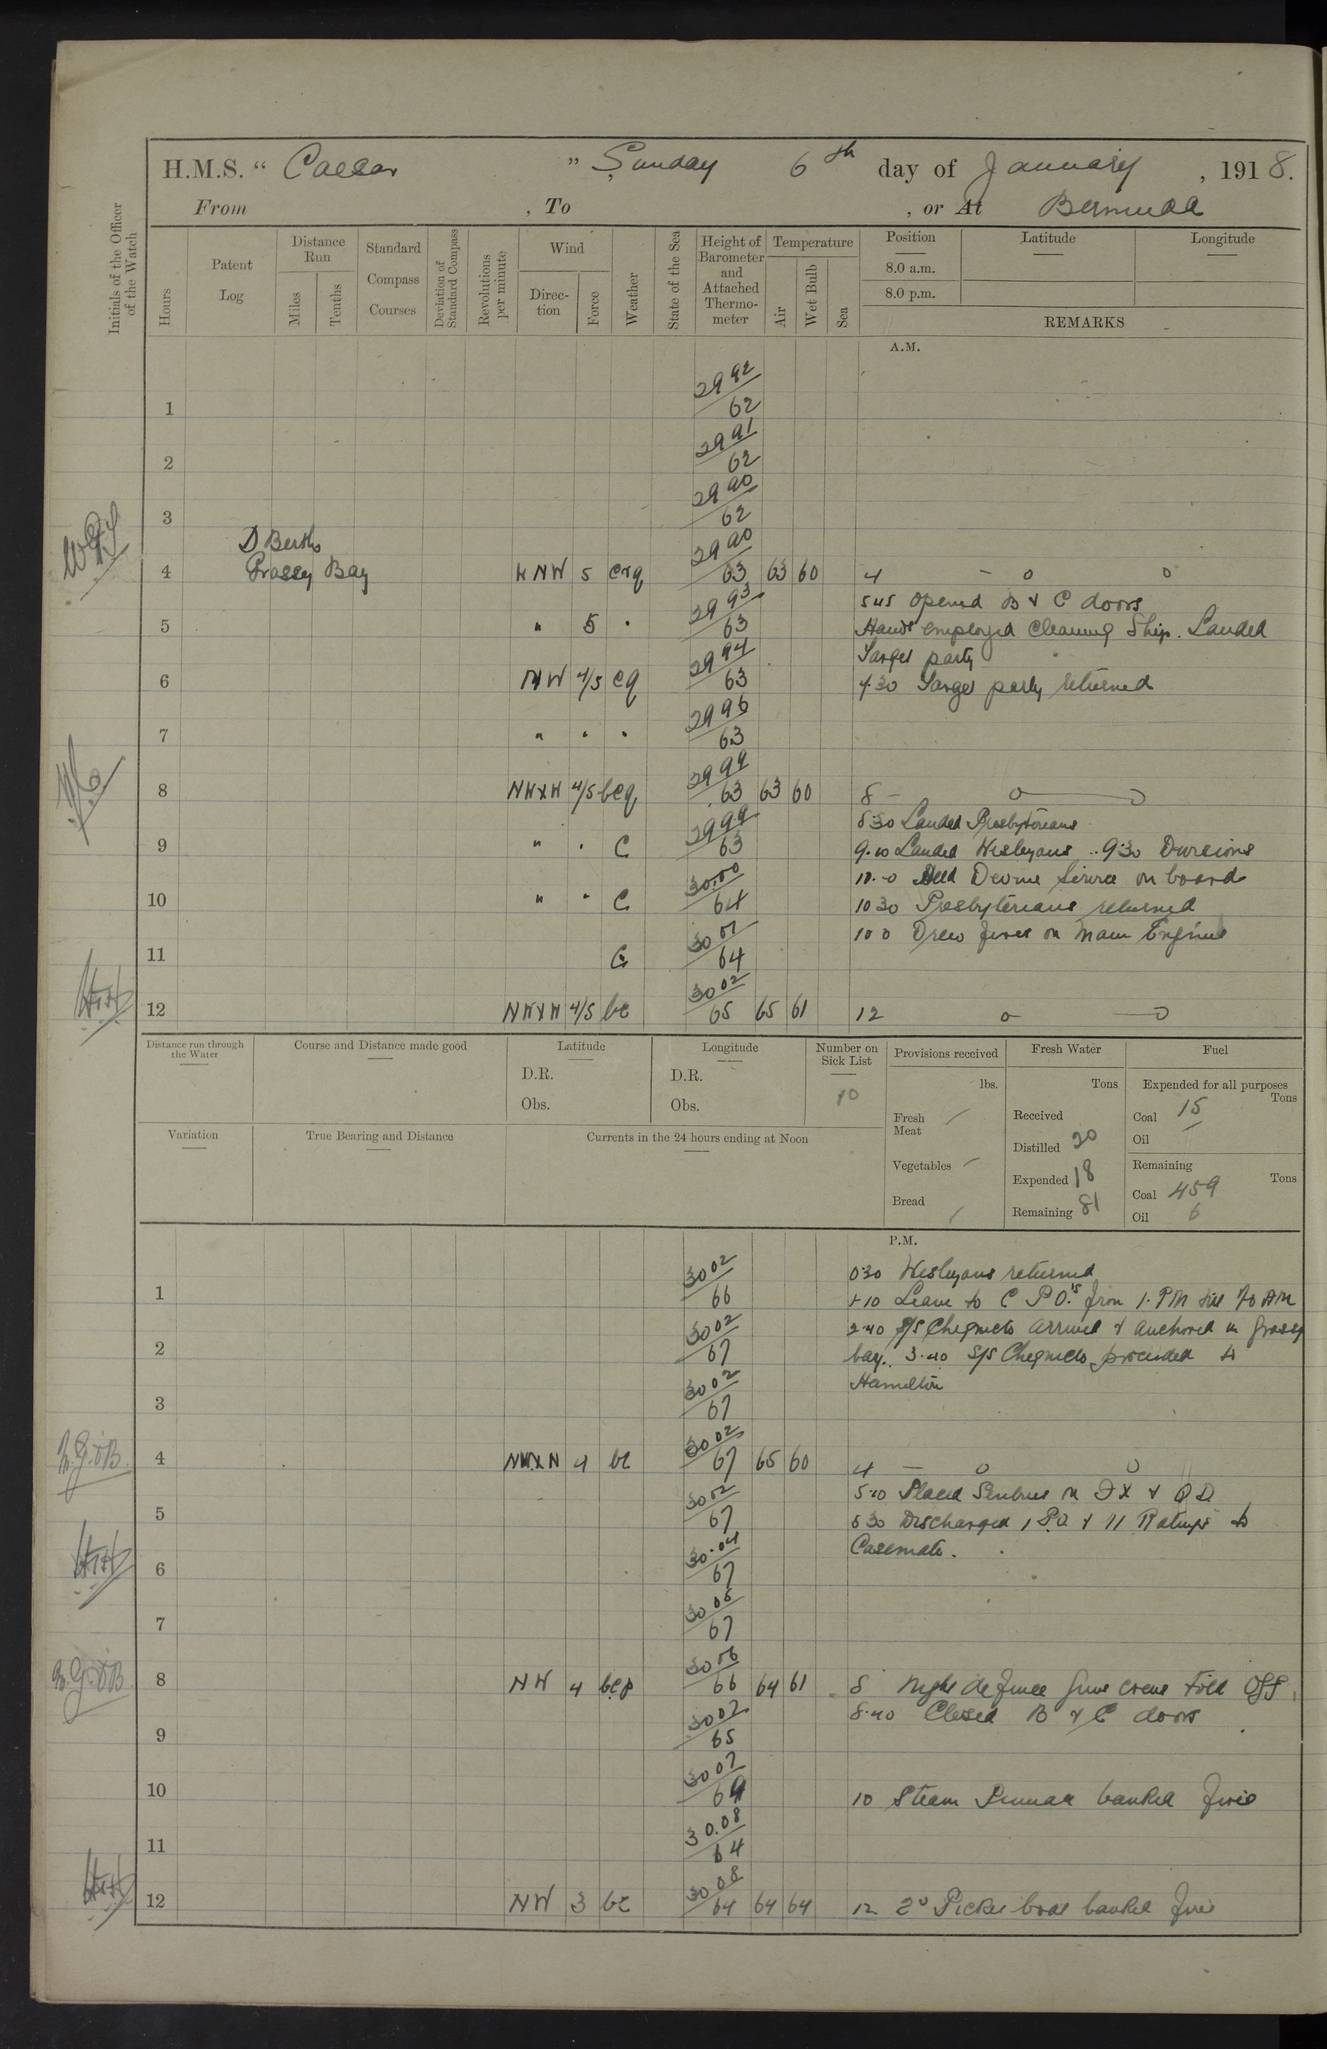 H.M.S. “ Caesar ” Sunday 6th day of January , 1918.
From , To , or At Bermuda
Initials of the Officer of the Watch
Hours
Patent Log
Distance Run
Miles
Tenths
Standard Compass Courses
Deviation of Standard Compass
Revolutions per minute
Wind
Direction
Force
Weather
State of the Sea
Height of Barometer and Attached Thermometer
Temperature
Air
Wet Bulb
Sea
Position
8.0 a.m.
8.0 p.m.
Latitude
Longitude
REMARKS
A.M.
1 2992/62
2 2991/62
3 2990/62
D Berth
4 Grassy Bay WNW 5 crq 2990/63 63 60 4 — o o
545 opened B & C doors
5 " 5 " 2993/63 Hands employed Cleaning Ship. Landed
Target party
6 NW 4/5 cq 2994/63 730 Target party returned
7 " " " 2996/63
8 NWxW 4/5 bcq 2999/63 63 60 8 - o o
830 Landed Presbyterians
9 " . C 2999/63 9.10 Landed Wesleyans .. 930 Divisions
10.0 Held Devine Service on board
10 " " C 30.00/64 1030 Presbyterians returned
100 Drew fires on Main Engines
11 C 3001/64
12 NWxW 4/5 bc 3002/65 65 61 12 o o
Distance run through the Water
Course and Distance made good
Latitude
D.R.
Obs.
Longitude
D.R.
Obs.
Number on Sick List
10
Provisions received
lbs.
Fresh Meat /
Vegetables /
Bread /
Fresh Water
Tons
Received
Distilled 20
Expended 18
Remaining 81
Fuel
Expended for all purposes
Tons
Coal 15
Oil /
Remaining
Tons
Coal 459
Oil 6
Variation
True Bearing and Distance
Currents in the 24 hours ending at Noon
P.M.
030 Wesleyans returned
1 3002/66 1.10 Leave to C P O.s from 1. PM till 70 AM
2.40 S/S Chignecto arrived & anchored in Grassy
2 3002/67 bay. 3.40 S/S Chignecto proceeded to
Hamilton
3 3002/67
4 NWxN 4 bc 3002/67 65 60 4 — o o
510 Placed Sentries on FX & QD
5 3002/67 530 Discharged 1 P.O. & 11 Ratings to
Casemate.
6 30.04/67
7 3005/67
8 NW 4 bcp 3006/66 64 61 8 Night defence Guns crews told off.
8.40 Closed B & C doors
9 3007/65
10 3007/64 10 Steam Pinnace banked fires
11 30.08/64
12 NW 3 bc 3008/64 64 64 12 2d Picket boat banked fires